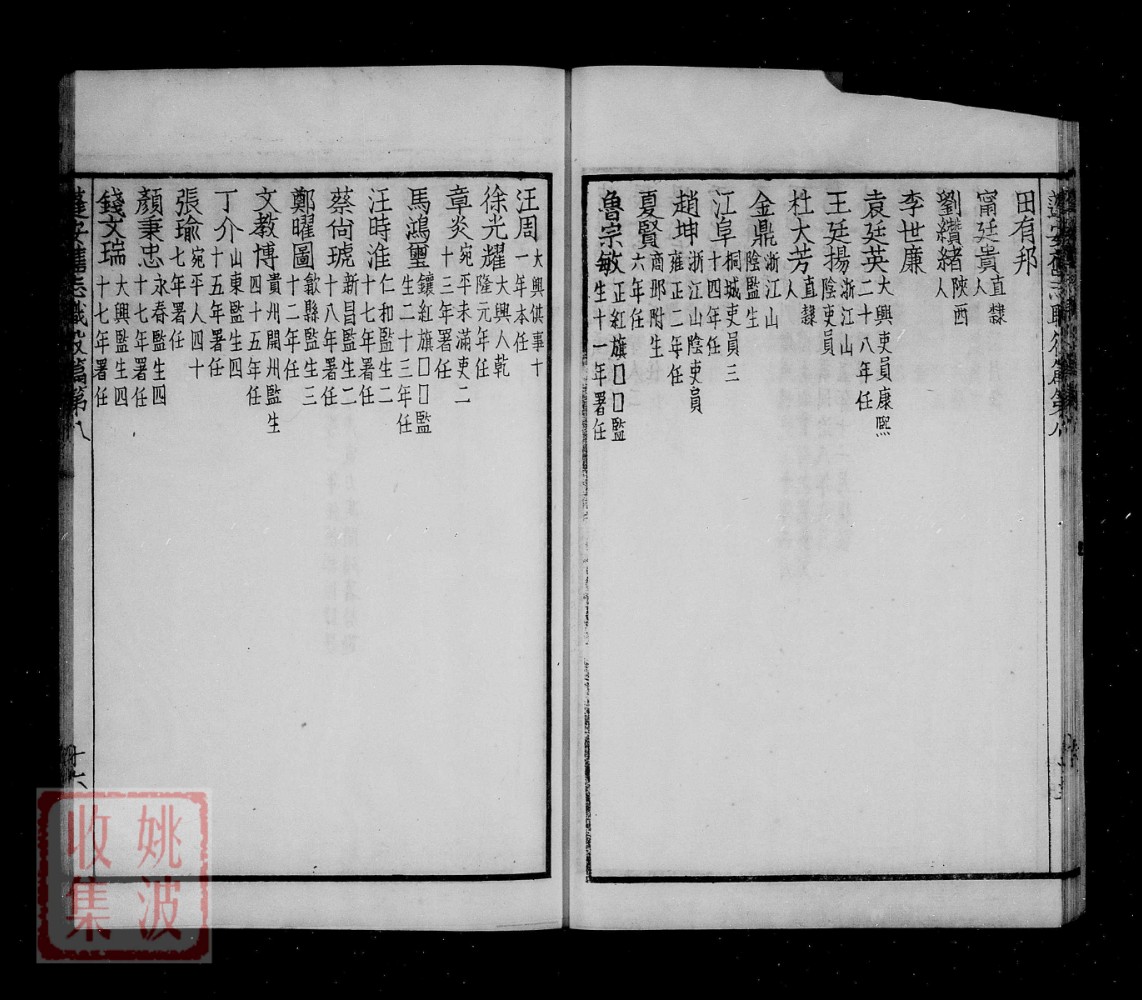 田有邦
甯廷貴直隸人
劉纘緒陝西人
李世廉
袁廷英大興吏員康熙二十八年任
王廷揚浙江山陰吏員
杜大芳直隸人
金鼎浙江山陰監生
江阜桐城吏員三十四年任
趙坤浙江山陰吏員雍正二年任
夏賢商邱附生六年任
魯宗敏正紅旗□□監生十一年署任
汪周大興供事十一年本任
徐光耀大興人乾隆元年任
章炎宛平未滿吏二十三年署任
馬鴻璽鑲紅旗□□監生二十三年任
汪時淮仁和監生二十七年署任
蔡尙琥新昌監生二十八年署任
鄭曜圖歙縣監生三十二年任
文教博貴州開州監生四十五年任
丁介山東監生四十五年署任
張瑜宛平人四十七年署任
顏秉忠永春監生四十七年署任
錢文瑞大興監生四十七年署任
蓬安舊志職役篇第八
十六
姚波
收集